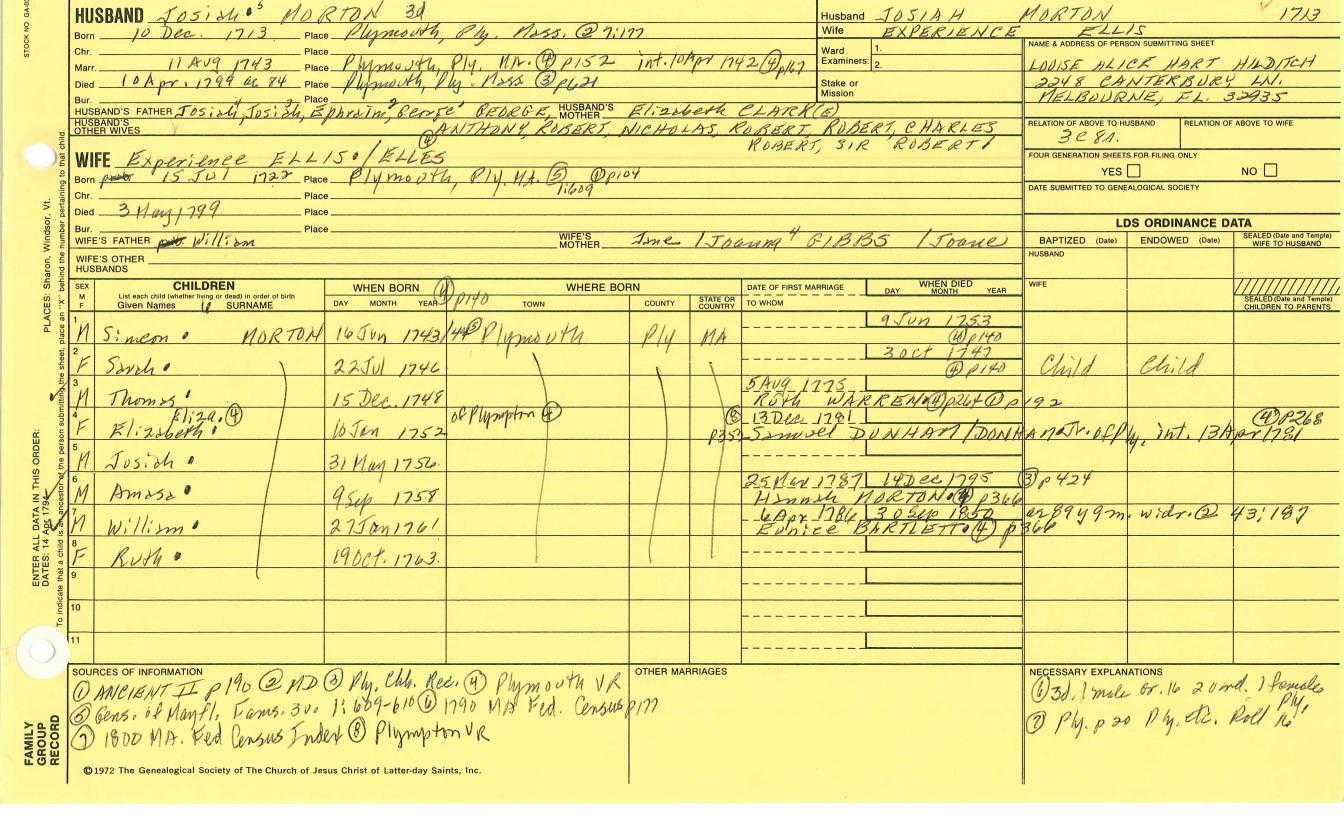 HUSBAND Josiah 5 MORTON 3d
Born 10 Dec. 1713 Place Plymouth, Ply. Mass. ② 7:177
Chr. Place
Marr. 11 Aug 1743 Place Plymouth, Ply, MA. ④ p152 int. 10 Apr 1742 ④ p167
Died 10 Apr. 1794 ae 84 Place Plymouth, Ply. Mass ③ p621
Bur. Place
HUSBAND'S FATHER Josiah 4, Josiah 3, Ephraim 2, George 1 GEORGE, HUSBAND'S MOTHER Elizabeth CLARK(E)
HUSBAND'S OTHER WIVES ANTHONY, ROBERT, NICHOLAS, ROBERT, ROBERT, CHARLES
ROBERT, SIR ROBERT
WIFE Experience ELLIS / ELLES ④
Born 15 Jul 1722 Place Plymouth, Ply. MA. ⑤ ① p104
1:609
Chr. Place
Died 3 May 1799 Place
Bur. Place
WIFE'S FATHER William WIFE'S MOTHER Jane / Joanna 4 GIBBS / Joane
WIFE'S OTHER HUSBANDS
Husband JOSIAH MORTON 1713
Wife EXPERIENCE ELLIS
Ward Examiners: 1.
2.
Stake or Mission
NAME & ADDRESS OF PERSON SUBMITTING SHEET
LOUISE ALICE HART HILDITCH
2248 CANTERBURY LN.
MELBOURNE, FL. 32935
RELATION OF ABOVE TO HUSBAND RELATION OF ABOVE TO WIFE
3c 8r.
FOUR GENERATION SHEETS FOR FILING ONLY
YES NO
DATE SUBMITTED TO GENEALOGICAL SOCIETY
LDS ORDINANCE DATA
BAPTIZED (Date) ENDOWED (Date) SEALED (Date and Temple) WIFE TO HUSBAND
HUSBAND
WIFE
SEALED (Date and Temple) CHILDREN TO PARENTS
SEX M F CHILDREN WHEN BORN ④ p140 WHERE BORN DATE OF FIRST MARRIAGE WHEN DIED
List each child (whether living or dead) in order of birth
Given Names SURNAME DAY MONTH YEAR TOWN COUNTY STATE OR COUNTRY TO WHOM DAY MONTH YEAR
1 M Simeon MORTON 16 Jun 1743/44 ⑤ Plymouth Ply MA 9 Jun 1753 ④ p140
2 F Sarah 22 Jul 1746 3 Oct 1747 ④ p140 Child Child
3 M Thomas 15 Dec. 1748 5 Aug 1775
RUTH WARREN ④ p264 ① p192
4 F Eliza. ④ Elizabeth 10 Jan 1752 of Plympton ④ ⑧ p352 13 Dec 1781 ④ p268
Samuel DUNHAM / DONHAM Jr. of Ply, int. 13 Apr 1781
5 M Josiah 31 May 1756
6 M Amasa 9 Sep 1758 25 Mar 1787 14 Dec 1795 ③ p424
Hannah MORTON ④ p366
7 M William 27 Jan 1761 6 Apr 1786 30 Sep 1850 ae 89y 9m. widr. ② 43:187
Eunice BARTLETT ④ p366
8 F Ruth 19 Oct. 1763
9
10
11
SOURCES OF INFORMATION
① ANCIENT II p190 ② MD ③ Ply. Chh. Rec. ④ Plymouth VR
⑤ Gens. of Mayfl. Fams. 3v. 1:609-610 ⑥ 1790 MA Fed. Census p177
⑦ 1800 MA. Fed Census Index ⑧ Plympton VR
OTHER MARRIAGES
NECESSARY EXPLANATIONS
⑥ 3d. 1 male or. 16 2 und. 1 females Ply,
⑦ Ply. p20 Ply. etc. Roll 16
©1972 The Genealogical Society of The Church of Jesus Christ of Latter-day Saints, Inc.
FAMILY GROUP RECORD
ENTER ALL DATA IN THIS ORDER:
DATES: 14 Apr 1794
PLACES: Sharon, Windsor, Vt.
To indicate that a child is an ancestor of the person submitting the sheet, place an "X" behind the number pertaining to that child.
STOCK NO.